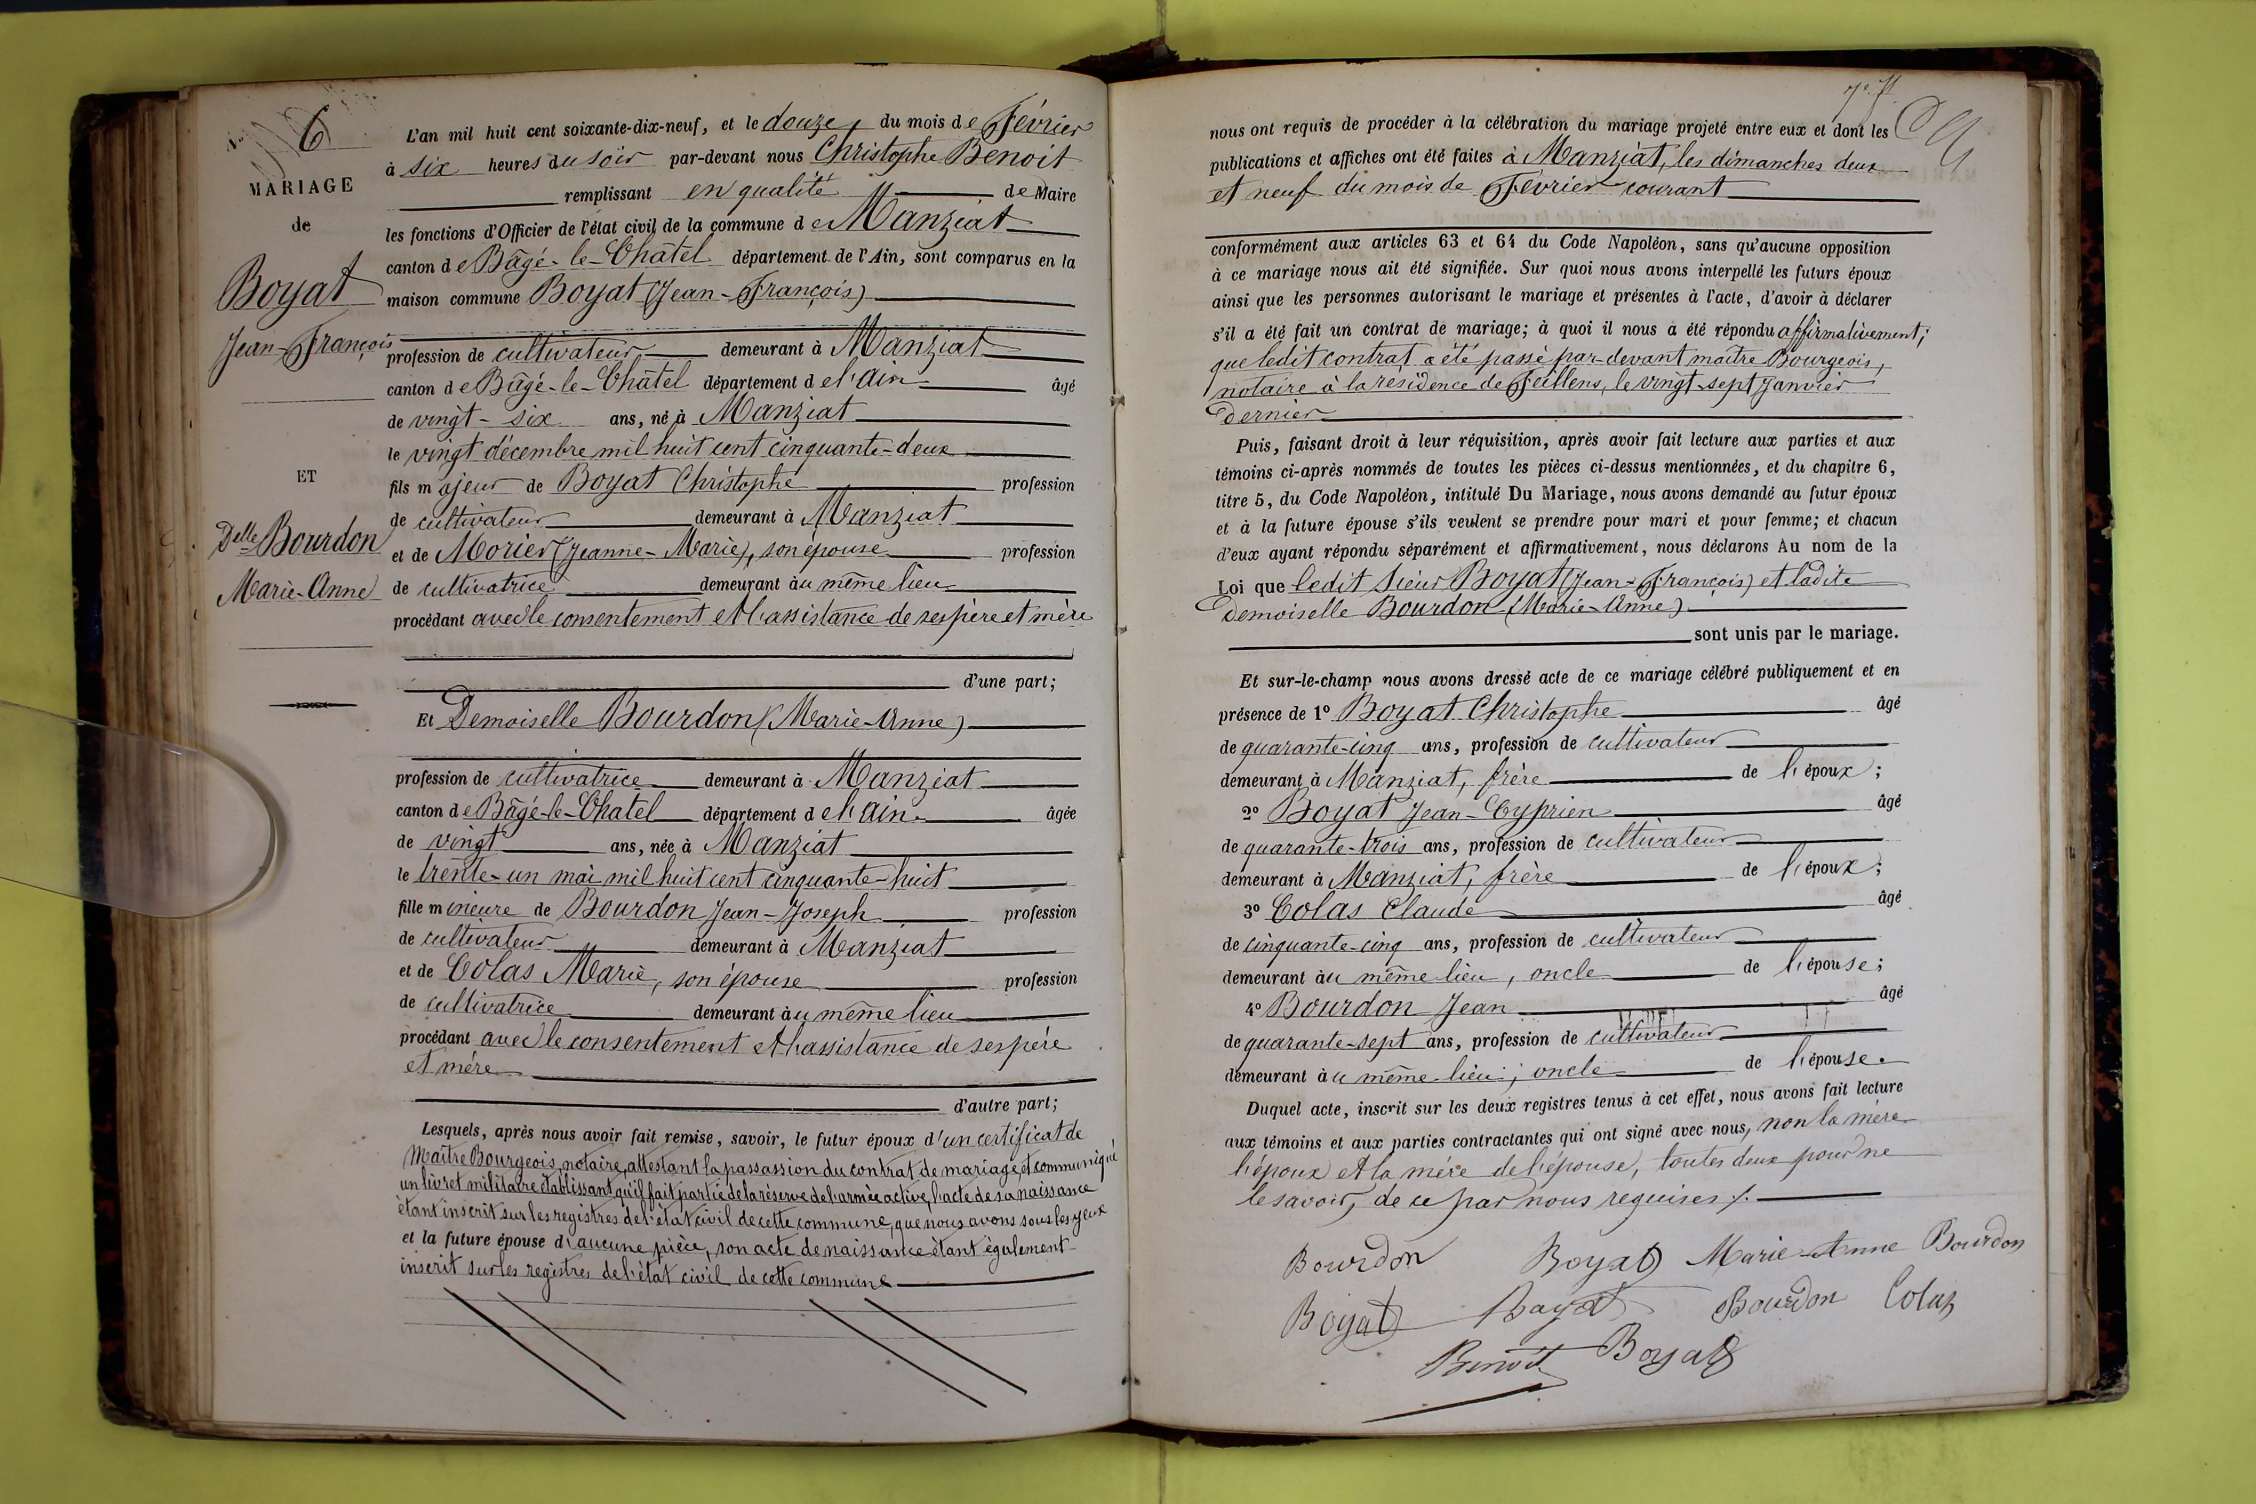 N° 6
MARIAGE
de
Boyat
Jean-François
ET
Delle Bourdon
Marie-Anne
L'an mil huit cent soixante-dix-neuf, et le douze, du mois de Février
à six heures du soir par-devant nous Christophe Benoit
remplissant en qualité de Maire
les fonctions d'Officier de l'état civil de la commune de Manziat
canton de Bâgé-le-Châtel département de l'Ain, sont comparus en la
maison commune Boyat (Jean-François)
profession de cultivateur demeurant à Manziat
canton de Bâgé-le-Châtel département de l'Ain âgé
de vingt-six ans, né à Manziat
le vingt décembre mil huit cent cinquante-deux
fils majeur de Boyat Christophe profession
de cultivateur demeurant à Manziat
et de Morier (Jeanne-Marie), son épouse profession
de cultivatrice demeurant au même lieu
procédant avec le consentement et l'assistance de ses père et mère
d'une part;
Et Demoiselle Bourdon (Marie-Anne)
profession de cultivatrice demeurant à Manziat
canton de Bâgé-le-Chatel département de l'Ain âgée
de vingt ans, née à Manziat
le trente-un mai mil huit cent cinquante-huit
fille mineure de Bourdon Jean-Joseph profession
de cultivateur demeurant à Manziat
et de Colas Marie, son épouse profession
de cultivatrice demeurant au même lieu
procédant avec le consentement et l'assistance de ses père
et mère
d'autre part;
Lesquels, après nous avoir fait remise, savoir, le futur époux d'un certificat de
Maître Bourgeois, notaire, attestant la passassion du contrat de mariage, et communiqué
un livret militaire établissant qu'il fait partie de la réserve de l'armée active, l'acte de sa naissance
étant inscrit sur les registres de l'état civil de cette commune, que nous avons sous les yeux
et la future épouse d'aucune pièce, son acte de naissance étant également
inscrit sur les registres de l'état civil de cette commune
nous ont requis de procéder à la célébration du mariage projeté entre eux et dont les
publications et affiches ont été faites à Manziat, les dimanches deux
et neuf du mois de Février courant
conformément aux articles 63 et 64 du Code Napoléon, sans qu'aucune opposition
à ce mariage nous ait été signifiée. Sur quoi nous avons interpellé les futurs époux
ainsi que les personnes autorisant le mariage et présentes à l'acte, d'avoir à déclarer
s'il a été fait un contrat de mariage; à quoi il nous a été répondu affirmativement;
que ledit contrat a été passé par-devant maître Bourgeois,
notaire à la résidence de Feillens, le vingt-sept Janvier
dernier
Puis, faisant droit à leur réquisition, après avoir fait lecture aux parties et aux
témoins ci-après nommés de toutes les pièces ci-dessus mentionnées, et du chapitre 6,
titre 5, du Code Napoléon, intitulé Du Mariage, nous avons demandé au futur époux
et à la future épouse s'ils veulent se prendre pour mari et pour femme; et chacun
d'eux ayant répondu séparément et affirmativement, nous déclarons Au nom de la
Loi que ledit sieur Boyat (Jean-François) et ladite
Demoiselle Bourdon (Marie-Anne)
sont unis par le mariage.
Et sur-le-champ nous avons dressé acte de ce mariage célébré publiquement et en
présence de 1° Boyat Christophe âgé
de quarante-cinq ans, profession de cultivateur
demeurant à Manziat, frère de l'époux;
2° Boyat Jean-Cyprien âgé
de quarante-trois ans, profession de cultivateur
demeurant à Manziat, frère de l'époux;
3° Colas Claude âgé
de cinquante-cinq ans, profession de cultivateur
demeurant au même lieu, oncle de l'épouse;
4° Bourdon Jean âgé
de quarante-sept ans, profession de cultivateur
demeurant au même lieu; oncle de l'épouse.
Duquel acte, inscrit sur les deux registres tenus à cet effet, nous avons fait lecture
aux témoins et aux parties contractantes qui ont signé avec nous, non la mère
l'époux et la mère de l'épouse, toutes deux pour ne
le savoir, de ce par nous requises /.
Bourdon Boyat Marie-Anne Bourdon
Boyat Bayat Bourdon Colas
Benoit Boyat